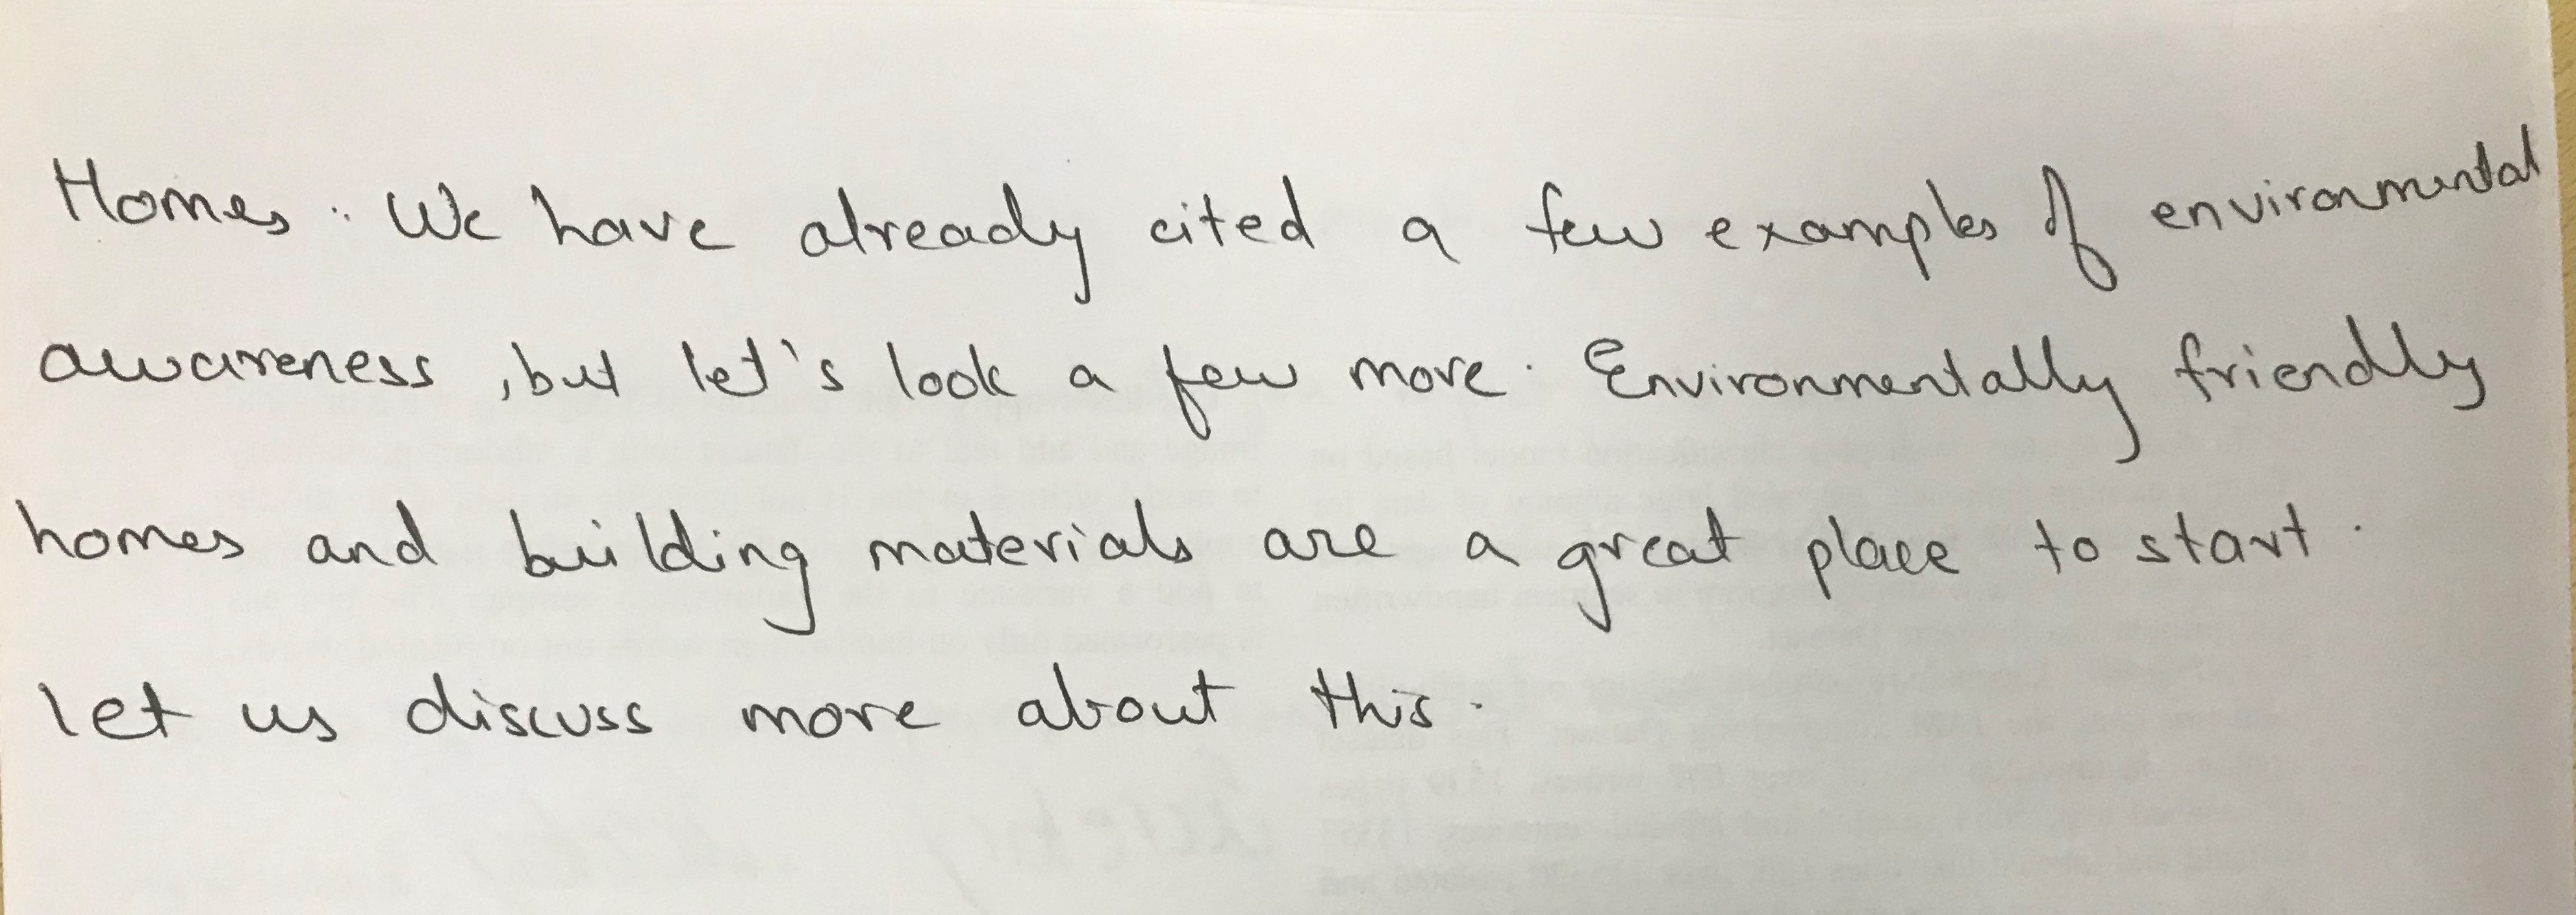 Homes : We have already cited a few examples of environmental
awareness ,but let's look a few more. Environmentally friendly
homes and building materials are a great place to start.
let us discuss more about this.